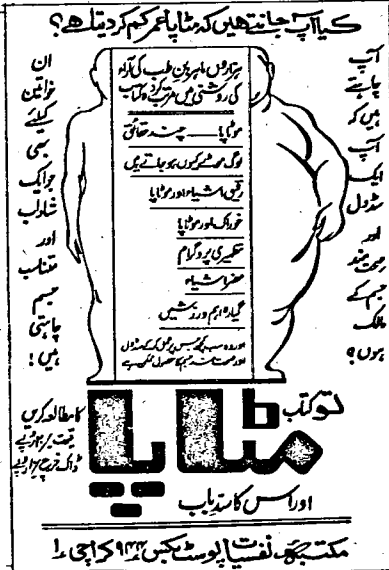 کیا آپ جانتے ہیں کہ مٹاپا عمر کم کر دیتا ہے؟
آپ
چاہتے
ہیں کہ
آپ
ایک
سڈول
اور
صحت مند
جسم کے
مالک
ہوں؟
ہزاروں ماہرین طب کی آراء
کی روشنی میں مرتب کردہ کتاب
موٹاپا..... چند حقائق
لوگ موٹے کیوں ہو جاتے ہیں
رقیق اشیاء اور موٹاپا
خوراک اور موٹاپا
تطہیری پروگرام
مضر اشیاء
گیارہ اہم ورزشیں
اور وہ سب کچھ جس پر عمل کر کے سڈول
اور صحت مند جسم کا حصول ممکن ہے
ان
خواتین
کیلئے
بھی
جو ایک
شاداب
اور
متناسب
جسم
چاہتی
ہیں!
تو کتب
مٹاپا
اور اس کا سدباب
کا مطالعہ کریں
قیمت
ڈاک خرچ
مکتبہ نفسیات پوسٹ بکس ۹۴۴ کراچی ۱